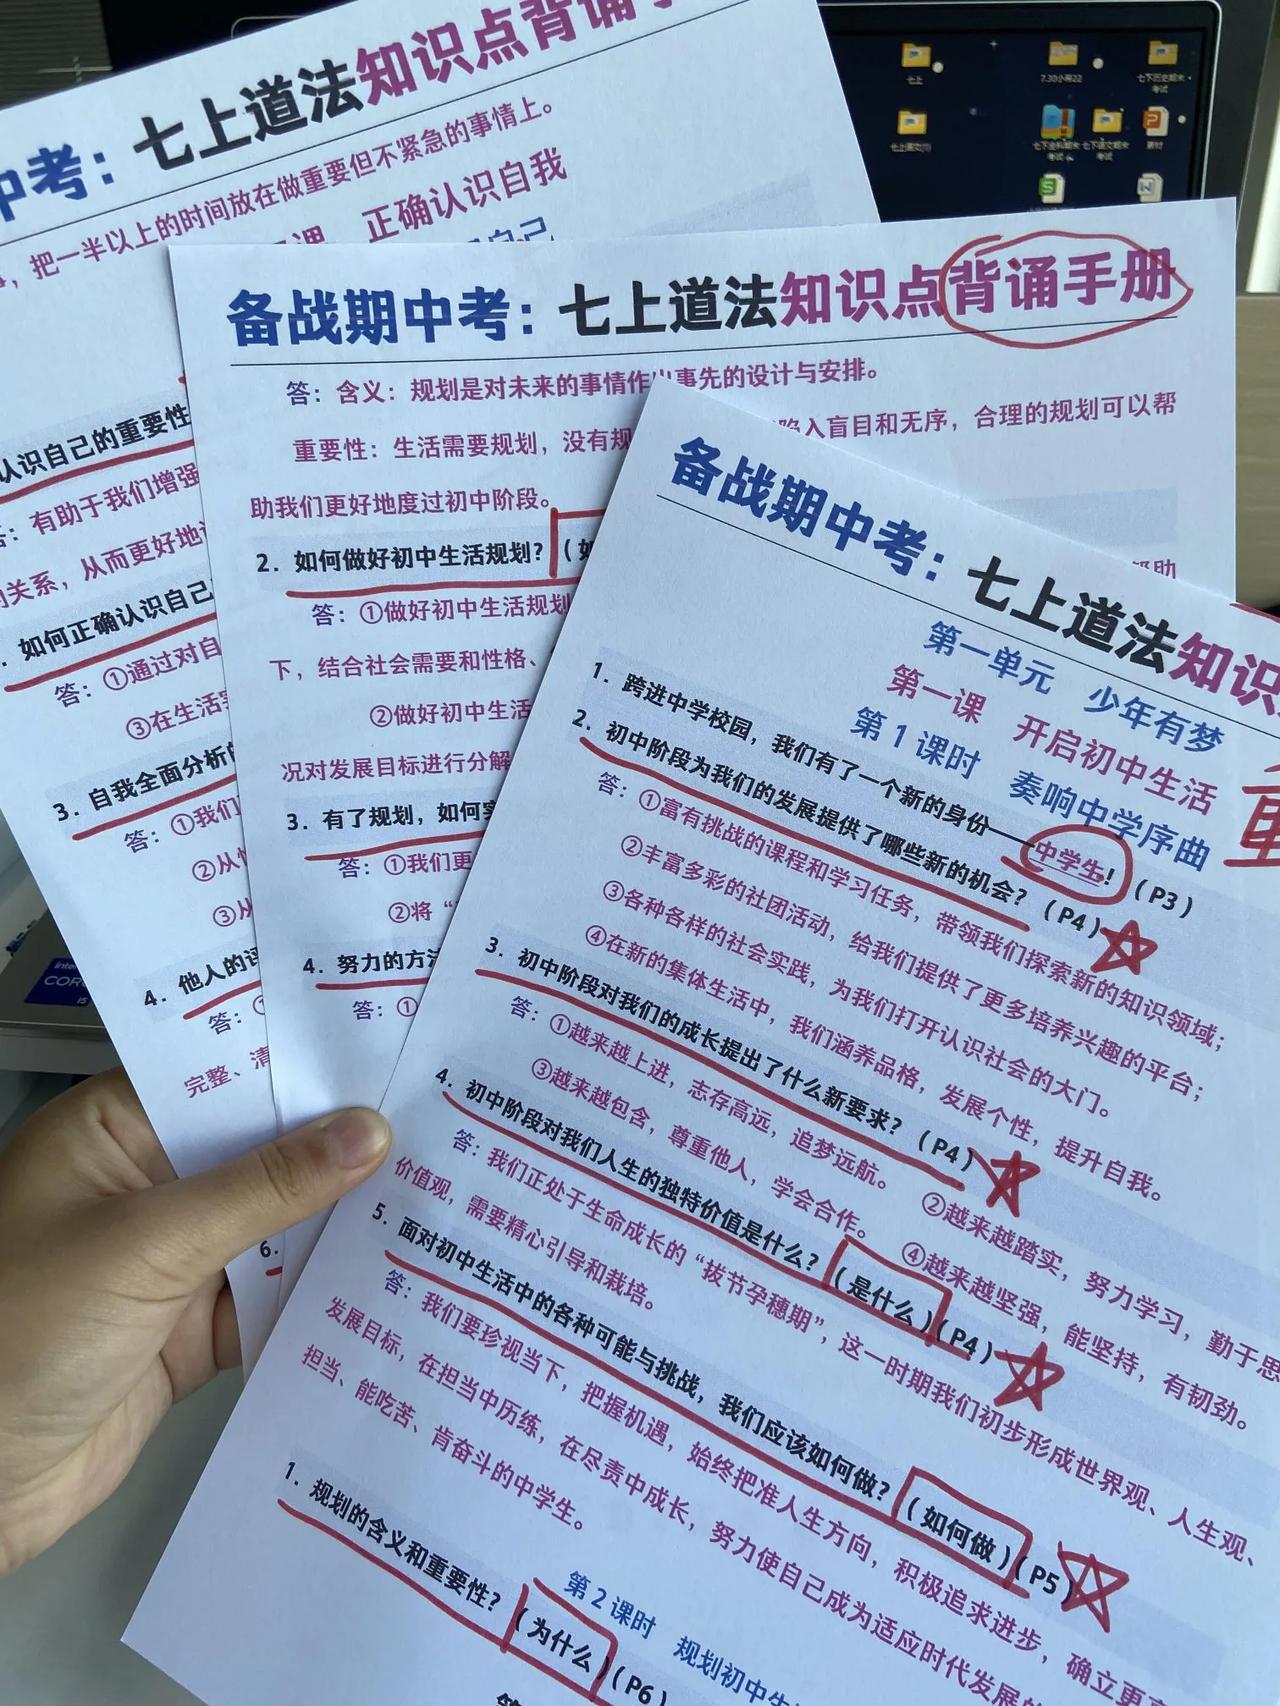 中考：七上道法知识点背诵
，把一半以上的时间放在做重要但不紧急的事情上。
课 正确认识自我
自己
认识自己的重要性
答：有助于我们增强
的关系，从而更好地
如何正确认识自己
答：①通过对自
③在生活
3. 自我全面分析的
答：①我们
②从
③从
4. 他人的评
答：①
完整、清
6.
备战期中考：七上道法知识点背诵手册
答：含义：规划是对未来的事情作出事先的设计与安排。
重要性：生活需要规划，没有规 陷入盲目和无序，合理的规划可以帮
助我们更好地度过初中阶段。
2. 如何做好初中生活规划？（如
帮助
答：①做好初中生活规划
下，结合社会需要和性格、
②做好初中生活
况对发展目标进行分解
3. 有了规划，如何实
答：①我们更
②将“
4. 努力的方法
答：①
备战期中考：七上道法知识
第一单元 少年有梦
第一课 开启初中生活
第1课时 奏响中学序曲
重
1. 跨进中学校园，我们有了一个新的身份——中学生！（P3）
2. 初中阶段为我们的发展提供了哪些新的机会？（P4）
答：①富有挑战的课程和学习任务，带领我们探索新的知识领域；
②丰富多彩的社团活动，给我们提供了更多培养兴趣的平台；
③各种各样的社会实践，为我们打开认识社会的大门。
④在新的集体生活中，我们涵养品格，发展个性，提升自我。
3. 初中阶段对我们的成长提出了什么新要求？（P4）
答：①越来越上进，志存高远，追梦远航。 ②越来越踏实，努力学习，勤于思
③越来越包含，尊重他人，学会合作。 ④越来越坚强，能坚持，有韧劲。
4. 初中阶段对我们人生的独特价值是什么？（是什么）（P4）
答：我们正处于生命成长的“拔节孕穗期”，这一时期我们初步形成世界观、人生观、
价值观，需要精心引导和栽培。
5. 面对初中生活中的各种可能与挑战，我们应该如何做？（如何做）（P5）
答：我们要珍视当下，把握机遇，始终把准人生方向，积极追求进步，确立更
发展目标，在担当中历练，在尽责中成长，努力使自己成为适应时代发展的
担当、能吃苦、肯奋斗的中学生。
第2课时 规划初中生
1. 规划的含义和重要性？（为什么）（P6）
七上
7.30小班22
七下历史期末考试
七上语文(1)
七下全科期末考试
七下语文期末考试
素材
intel
CORE
i5